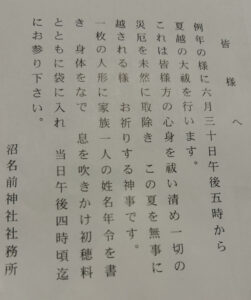 皆様へ
例年の様に六月三十日午後五時から
夏越の大祓を行います。
これは皆様方の心身を祓い清め一切の
災厄を未然に取除き　この夏を無事に
越される様　お祈りする神事です。
一枚の人形に家族一人の姓名年令を書
き　身体をなで　息を吹きかけ初穂料
とともに袋に入れ　当日午後四時頃迄
にお参り下さい。
沼名前神社社務所